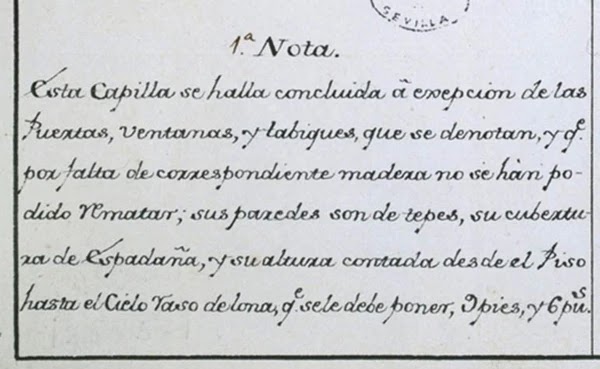 SEVILLA
1.ª Nota.
Esta Capilla se halla concluida â exepcion de las
Puertas, ventanas, y tabiques, que se denotan, y q.e
por falta de correspondiente madera no se hàn po-
dido rematar; sus paredes son de tepes, su cubertu-
ra de Espadaña, y su altura contada desde el Piso
hasta el Cielo raso de lona, q.e se le debe poner, 9 pies, y 6 pu.s